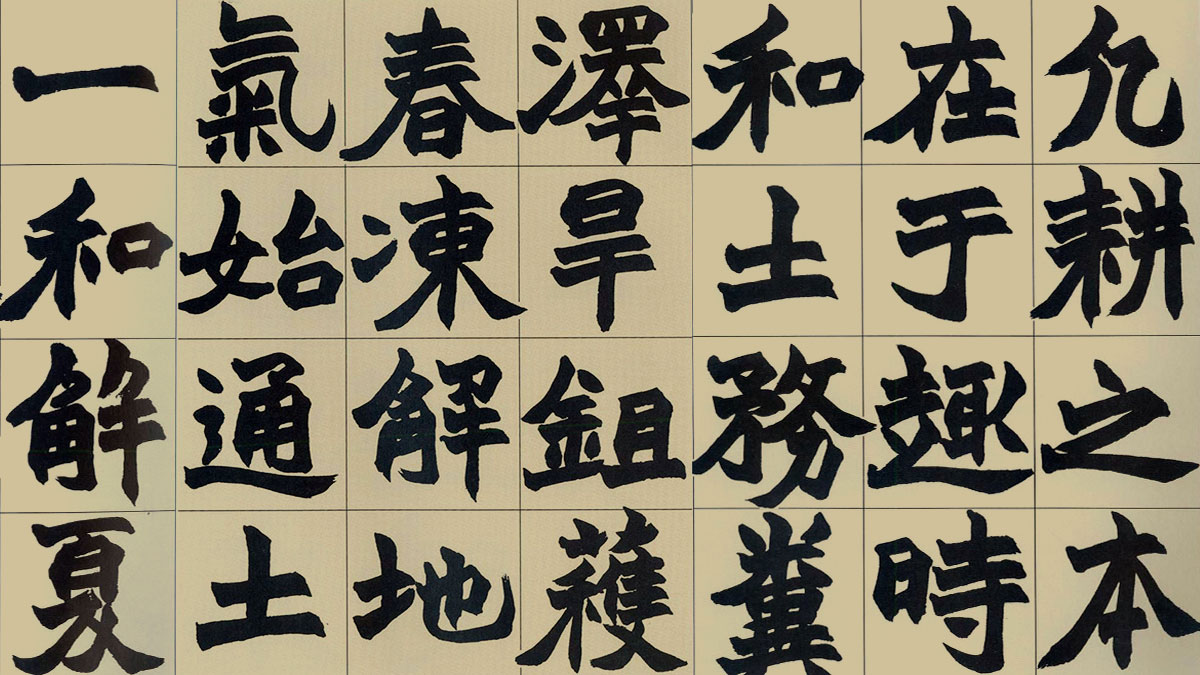 凡耕之本
在于趣時
和土務糞
澤旱鉏穫
春凍解地
氣始通土
一和解夏